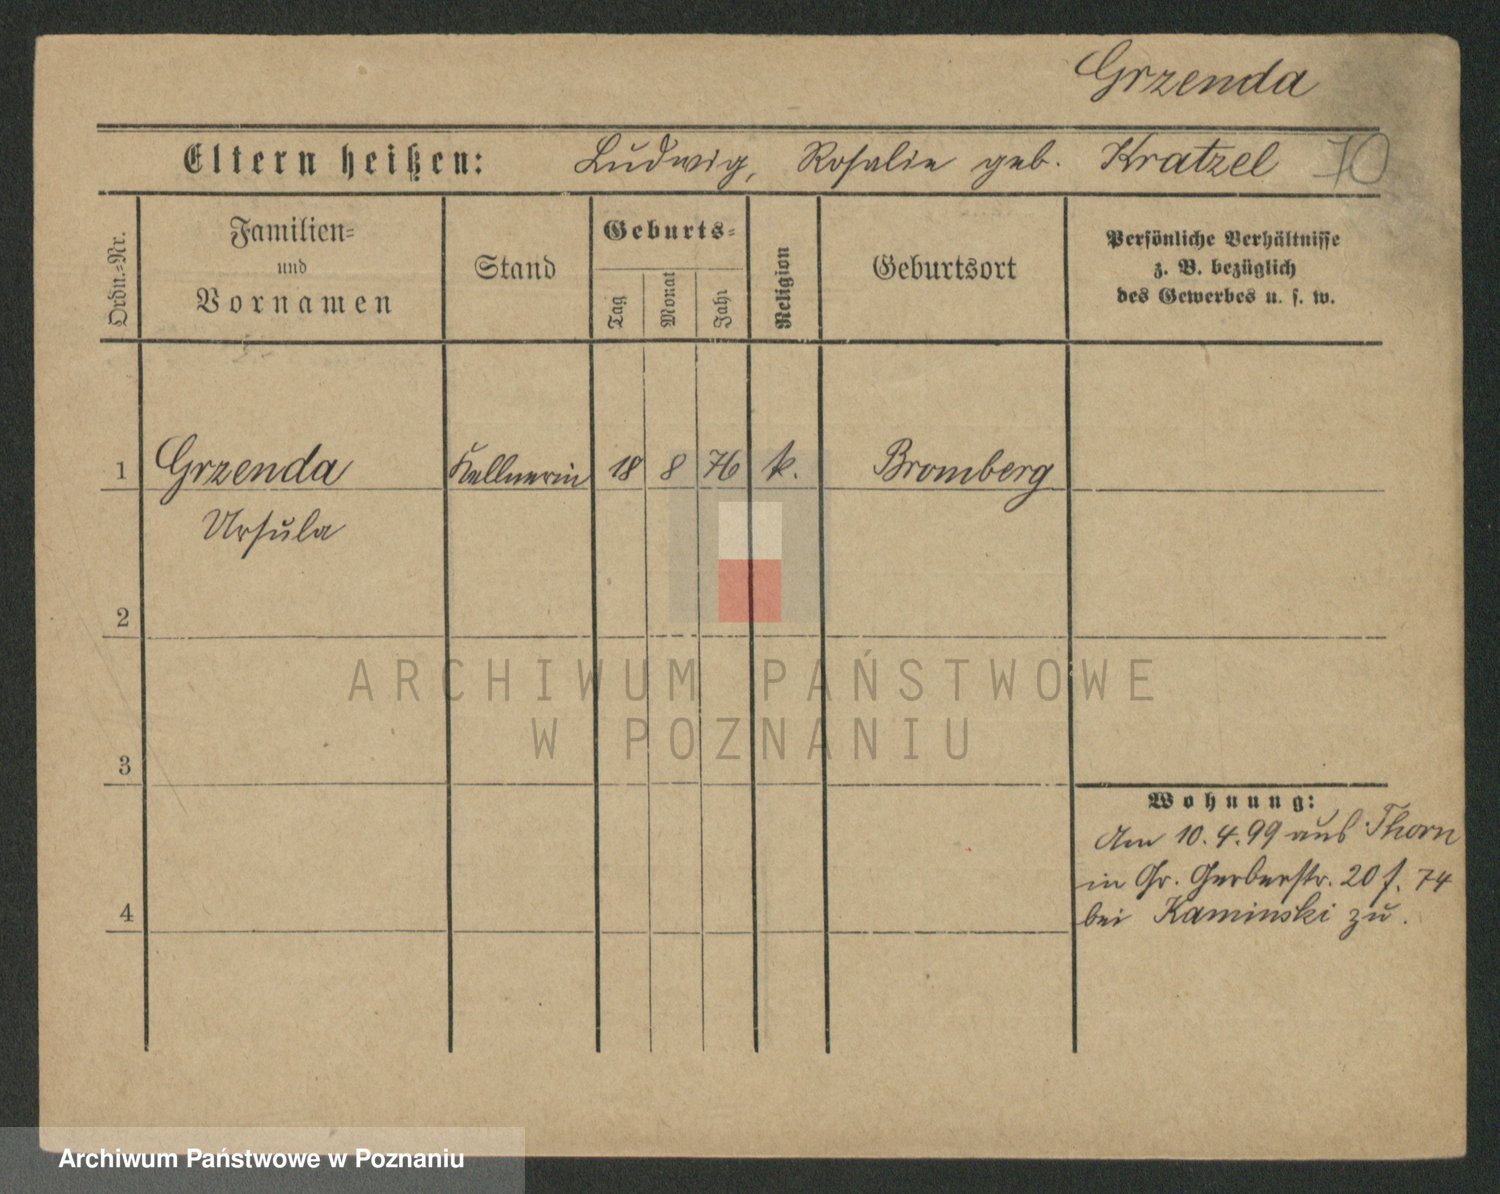 Grzenda
Eltern heißen: Ludwig, Rosalie geb. Kratzel 70
Ordn.=Nr.
Familien=
und
Vornamen
Stand
Geburts=
Tag
Monat
Jahr
Religion
Geburtsort
Persönliche Verhältnisse
z. B. bezüglich
des Gewerbes u. s. w.
1 Grzenda Kellnerin 18 8 76 k. Bromberg
Ursula
2
3
4
Wohnung:
Am 10.4.99 aus Thorn
in Gr. Gerberstr. 20 f. 74
bei Kaminski zu.
ARCHIWUM PAŃSTWOWE
W POZNANIU
Archiwum Państwowe w Poznaniu